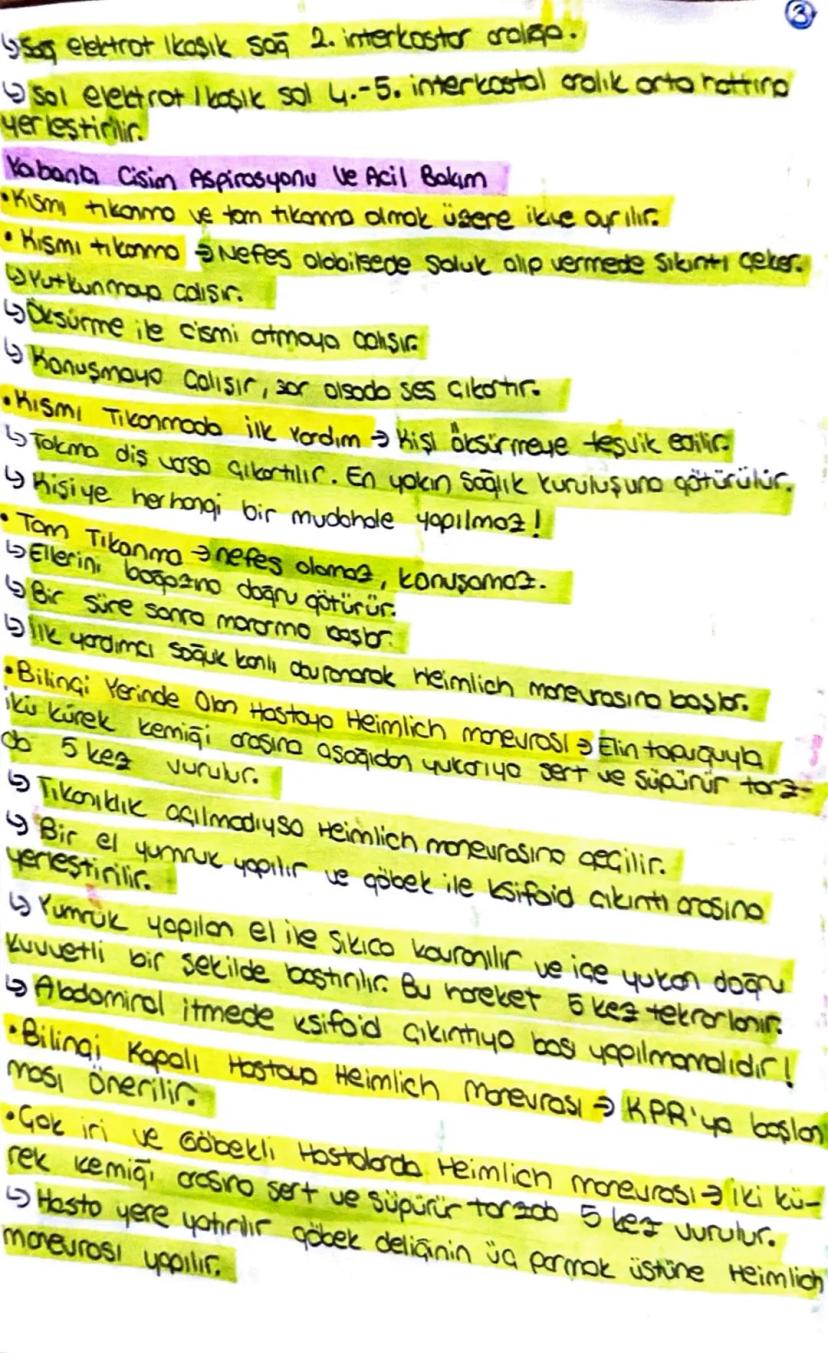 3
↳ Sağ elektrot / kaşık sağ 2. interkostor aralığa.
↳ Sol elektrot / kaşık sol 4.-5. interkostal aralık orta hattına
yerleştirilir.
Yabancı Cisim Aspirasyonu ve Acil Bakım
• Kısmi tıkanma ve tam tıkanma olmak üzere ikiye ayrılır.
• Kısmı tıkanma → Nefes alabilsede soluk alıp vermede sıkıntı çeker.
↳ Yutkunmaya çalışır.
↳ Öksürme ile cismi atmaya çalışır.
↳ Konuşmaya çalışır, zor olsada ses çıkartır.
• Kısmı Tıkanmada ilk yardım → Kişi öksürmeye teşvik edilir.
↳ Takma diş varsa çıkartılır. En yakın sağlık kuruluşuna götürülür.
↳ Kişiye herhangi bir mudahale yapılmaz!
• Tam Tıkanma → nefes alamaz, konuşamaz.
↳ Ellerini boğazına doğru götürür.
↳ Bir süre sonra morarma başlar.
↳ İlk yardımcı soğuk kanlı davranarak Heimlich manevrasına başlar.
• Bilinçi Yerinde Olan Hastaya Heimlich manevrası → Elin topuğuyla
iki kürek kemiği arasına aşağıdan yukarıya sert ve süpürür tarz-
da 5 kez vurulur.
↳ Tıkanıklık açılmadıysa Heimlich manevrasına geçilir.
↳ Bir el yumruk yapılır ve göbek ile ksifoid çıkıntı arasına
yerleştirilir.
↳ Yumruk yapılan el ile sıkıca kavranılır ve içe yukarı doğru
kuvvetli bir şekilde bastırılır. Bu hareket 5 kez tekrarlanır.
↳ Abdominal itmede ksifoid çıkıntıya bası yapılmamalıdır!
• Bilinçi Kapalı Hastaya Heimlich Manevrası → KPR'ya başlan
ması önerilir.
• Çok iri ve Göbekli Hastalarda Heimlich manevrası → iki kü-
rek kemiği arasına sert ve süpürür tarzda 5 kez vurulur.
↳ Hasta yere yatırılır göbek deliğinin üç parmak üstüne Heimlich
manevrası yapılır.